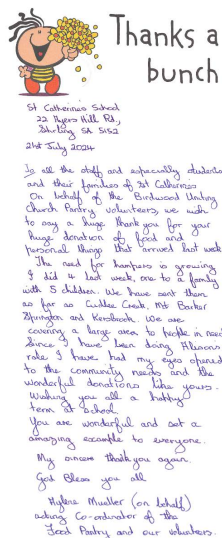 Thanks a
bunch
St Catherine's School
22 Ayers Hill Rd,
Stirling SA 5152
21st July 2024
To all the staff and especially students
and their families of St Catherines
On behalf of the Birdwood Uniting
Church Pantry volunteers, we wish
to say a huge thank you for your
huge donation of food and
personal things that arrived last week
The need for hampers is growing
I did 4 last week, one to a family
with 5 children. We have sent them
as far as Cudlee Creek, Mt Barker
Springton and Kersbrook. We are
covering a large area to people in need
Since I have been doing Alison's
role I have had my eyes opened
to the community needs and the
wonderful donations like yours.
Wishing you all a happy
term at school.
You are wonderful and set a
amazing example to everyone.
My sincere thank you again.
God Bless you all
Mueller (on behalf)
acting Co-ordinator of the
Food Pantry and our volunteers